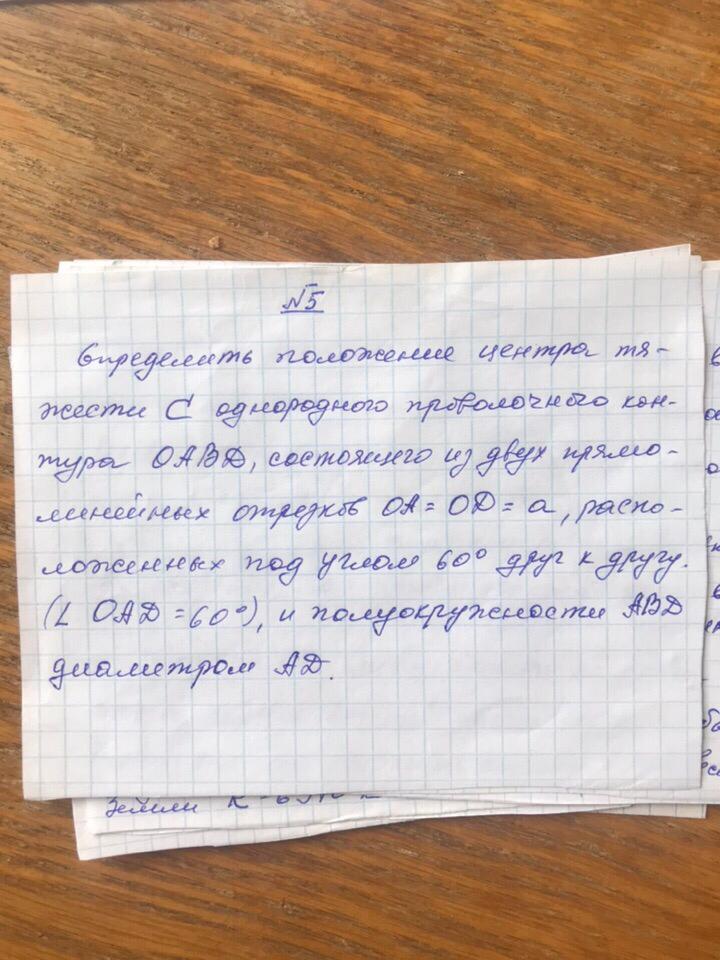 №5
Определить положение центра тя-
жести С однородного проволочного кон-
тура OABD, состоящего из двух прямо-
линейных отрезков OA = OD = a, распо-
ложенных под углом 60° друг к другу.
(∠ OAD = 60°), и полуокружности ABD
диаметром AD.
Земли R